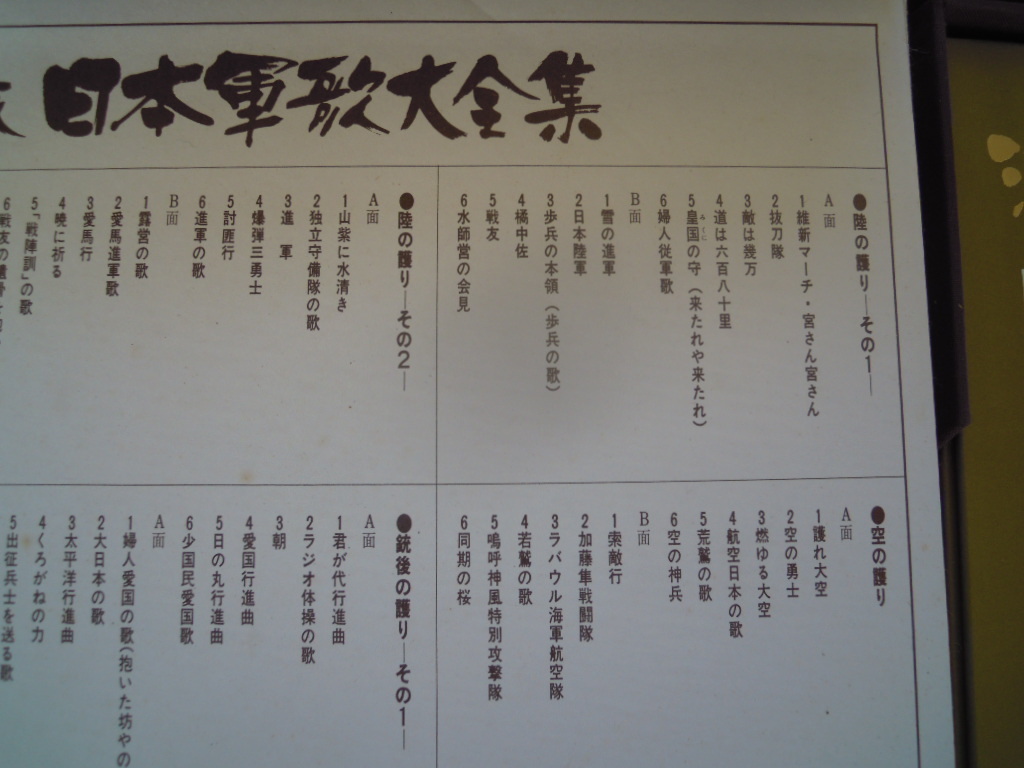 日本軍歌大全集
●陸の護り―その1―
A面
1維新マーチ・宮さん宮さん
2抜刀隊
3敵は幾万
4道は六百八十里
5皇国の守（来たれや来たれ）
みくに
6婦人従軍歌
B面
1雪の進軍
2日本陸軍
3歩兵の本領（歩兵の歌）
4橘中佐
5戦友
6水師営の会見
●陸の護り―その2―
A面
1山紫に水清き
2独立守備隊の歌
3進 軍
4爆弾三勇士
5討匪行
6進軍の歌
B面
1露営の歌
2愛馬進軍歌
3愛馬行
4暁に祈る
5「戦陣訓」の歌
6戦友の遺骨を抱
●空の護り
A面
1護れ大空
2空の勇士
3燃ゆる大空
4航空日本の歌
5荒鷲の歌
6空の神兵
B面
1索敵行
2加藤隼戦闘隊
3ラバウル海軍航空隊
4若鷲の歌
5嗚呼神風特別攻撃隊
6同期の桜
●銃後の護り―その1―
A面
1君が代行進曲
2ラジオ体操の歌
3朝
4愛国行進曲
5日の丸行進曲
6少国民愛国歌
A面
1婦人愛国の歌（抱いた坊やの
2大日本の歌
3太平洋行進曲
4くろがねの力
5出征兵士を送る歌